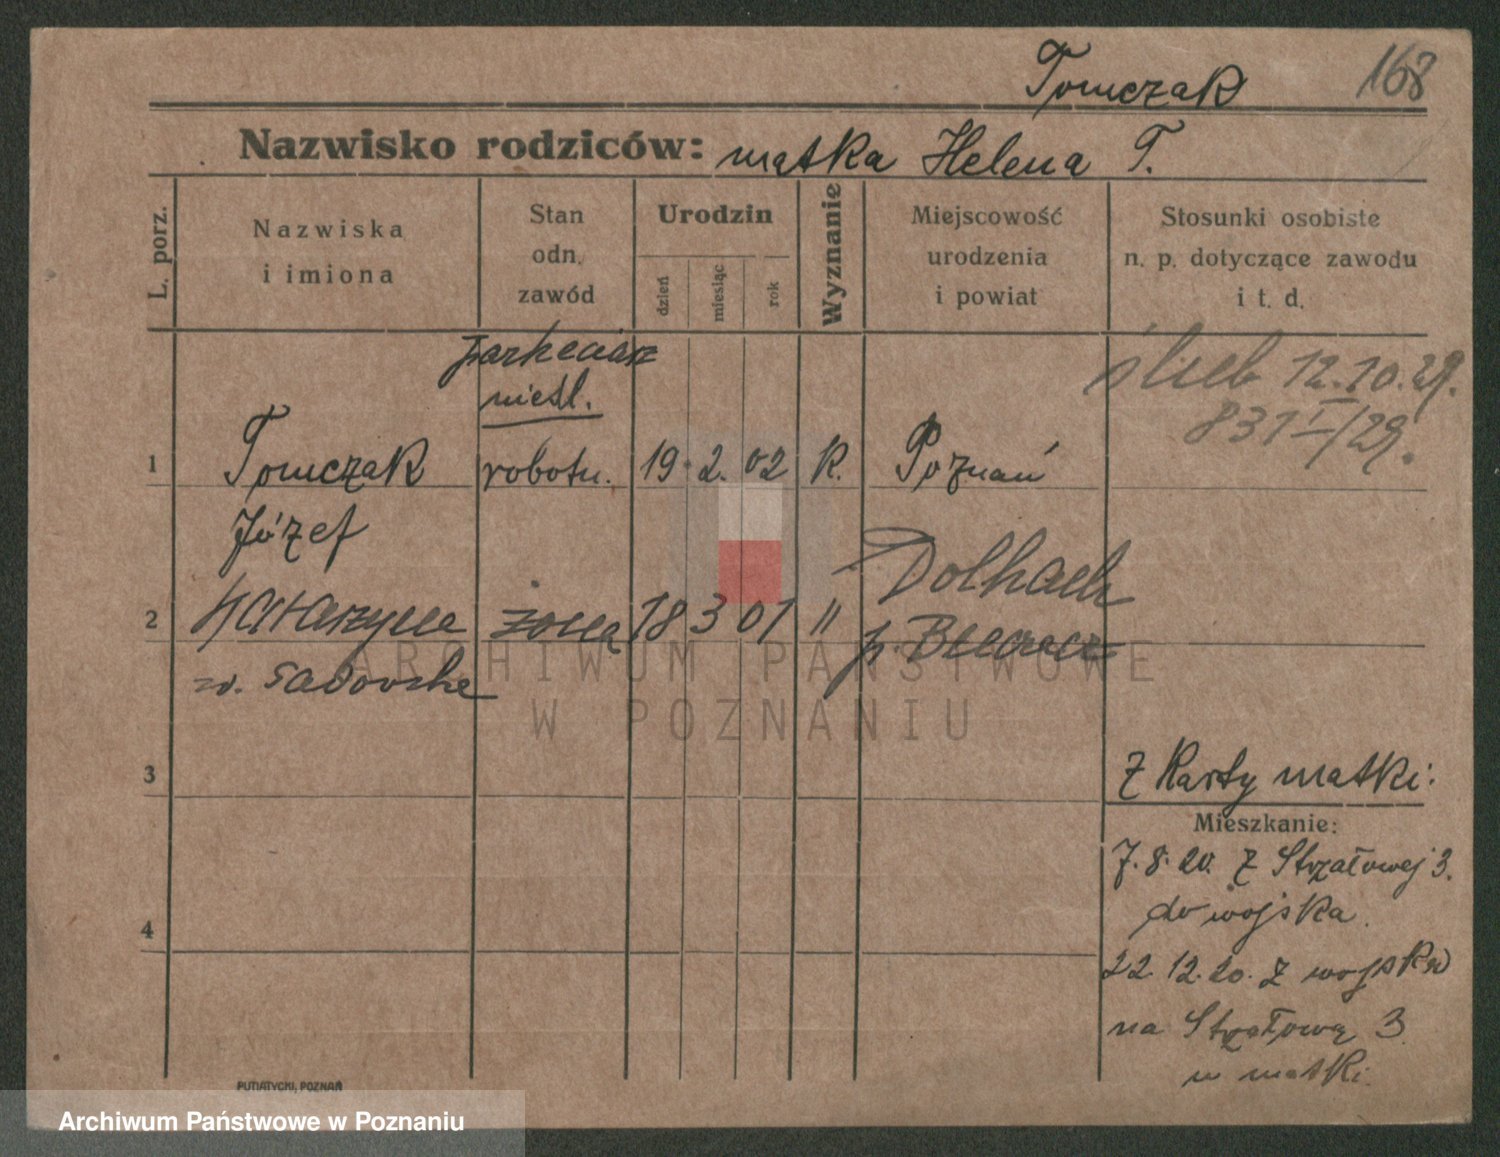 Tomczak 168
Nazwisko rodziców: matka Helena T.
L. porz.
Nazwiska
i imiona
Stan
odn.
zawód
Urodzin
dzień
miesiąc
rok
Wyznanie
Miejscowość
urodzenia
i powiat
Stosunki osobiste
n. p. dotyczące zawodu
i t. d.
parkeciarz
nieśl.
ślub 12.10.29.
831 I/29.
1 Tomczak robotn. 19. 2. 02 K. Poznań
Józef
Dolhacz
2 Katarzyna żona 18 3 01 " p.
z d. Sadowska
ARCHIWUM PAŃSTWOWE
W POZNANIU
3
Z Karty matki:
Mieszkanie:
7.8.20. Z Strzałowej 3.
do wojska.
4
22.12.20. Z wojska
na Strzałową 3
u matki.
PUTIATYCKI, POZNAŃ
Archiwum Państwowe w Poznaniu